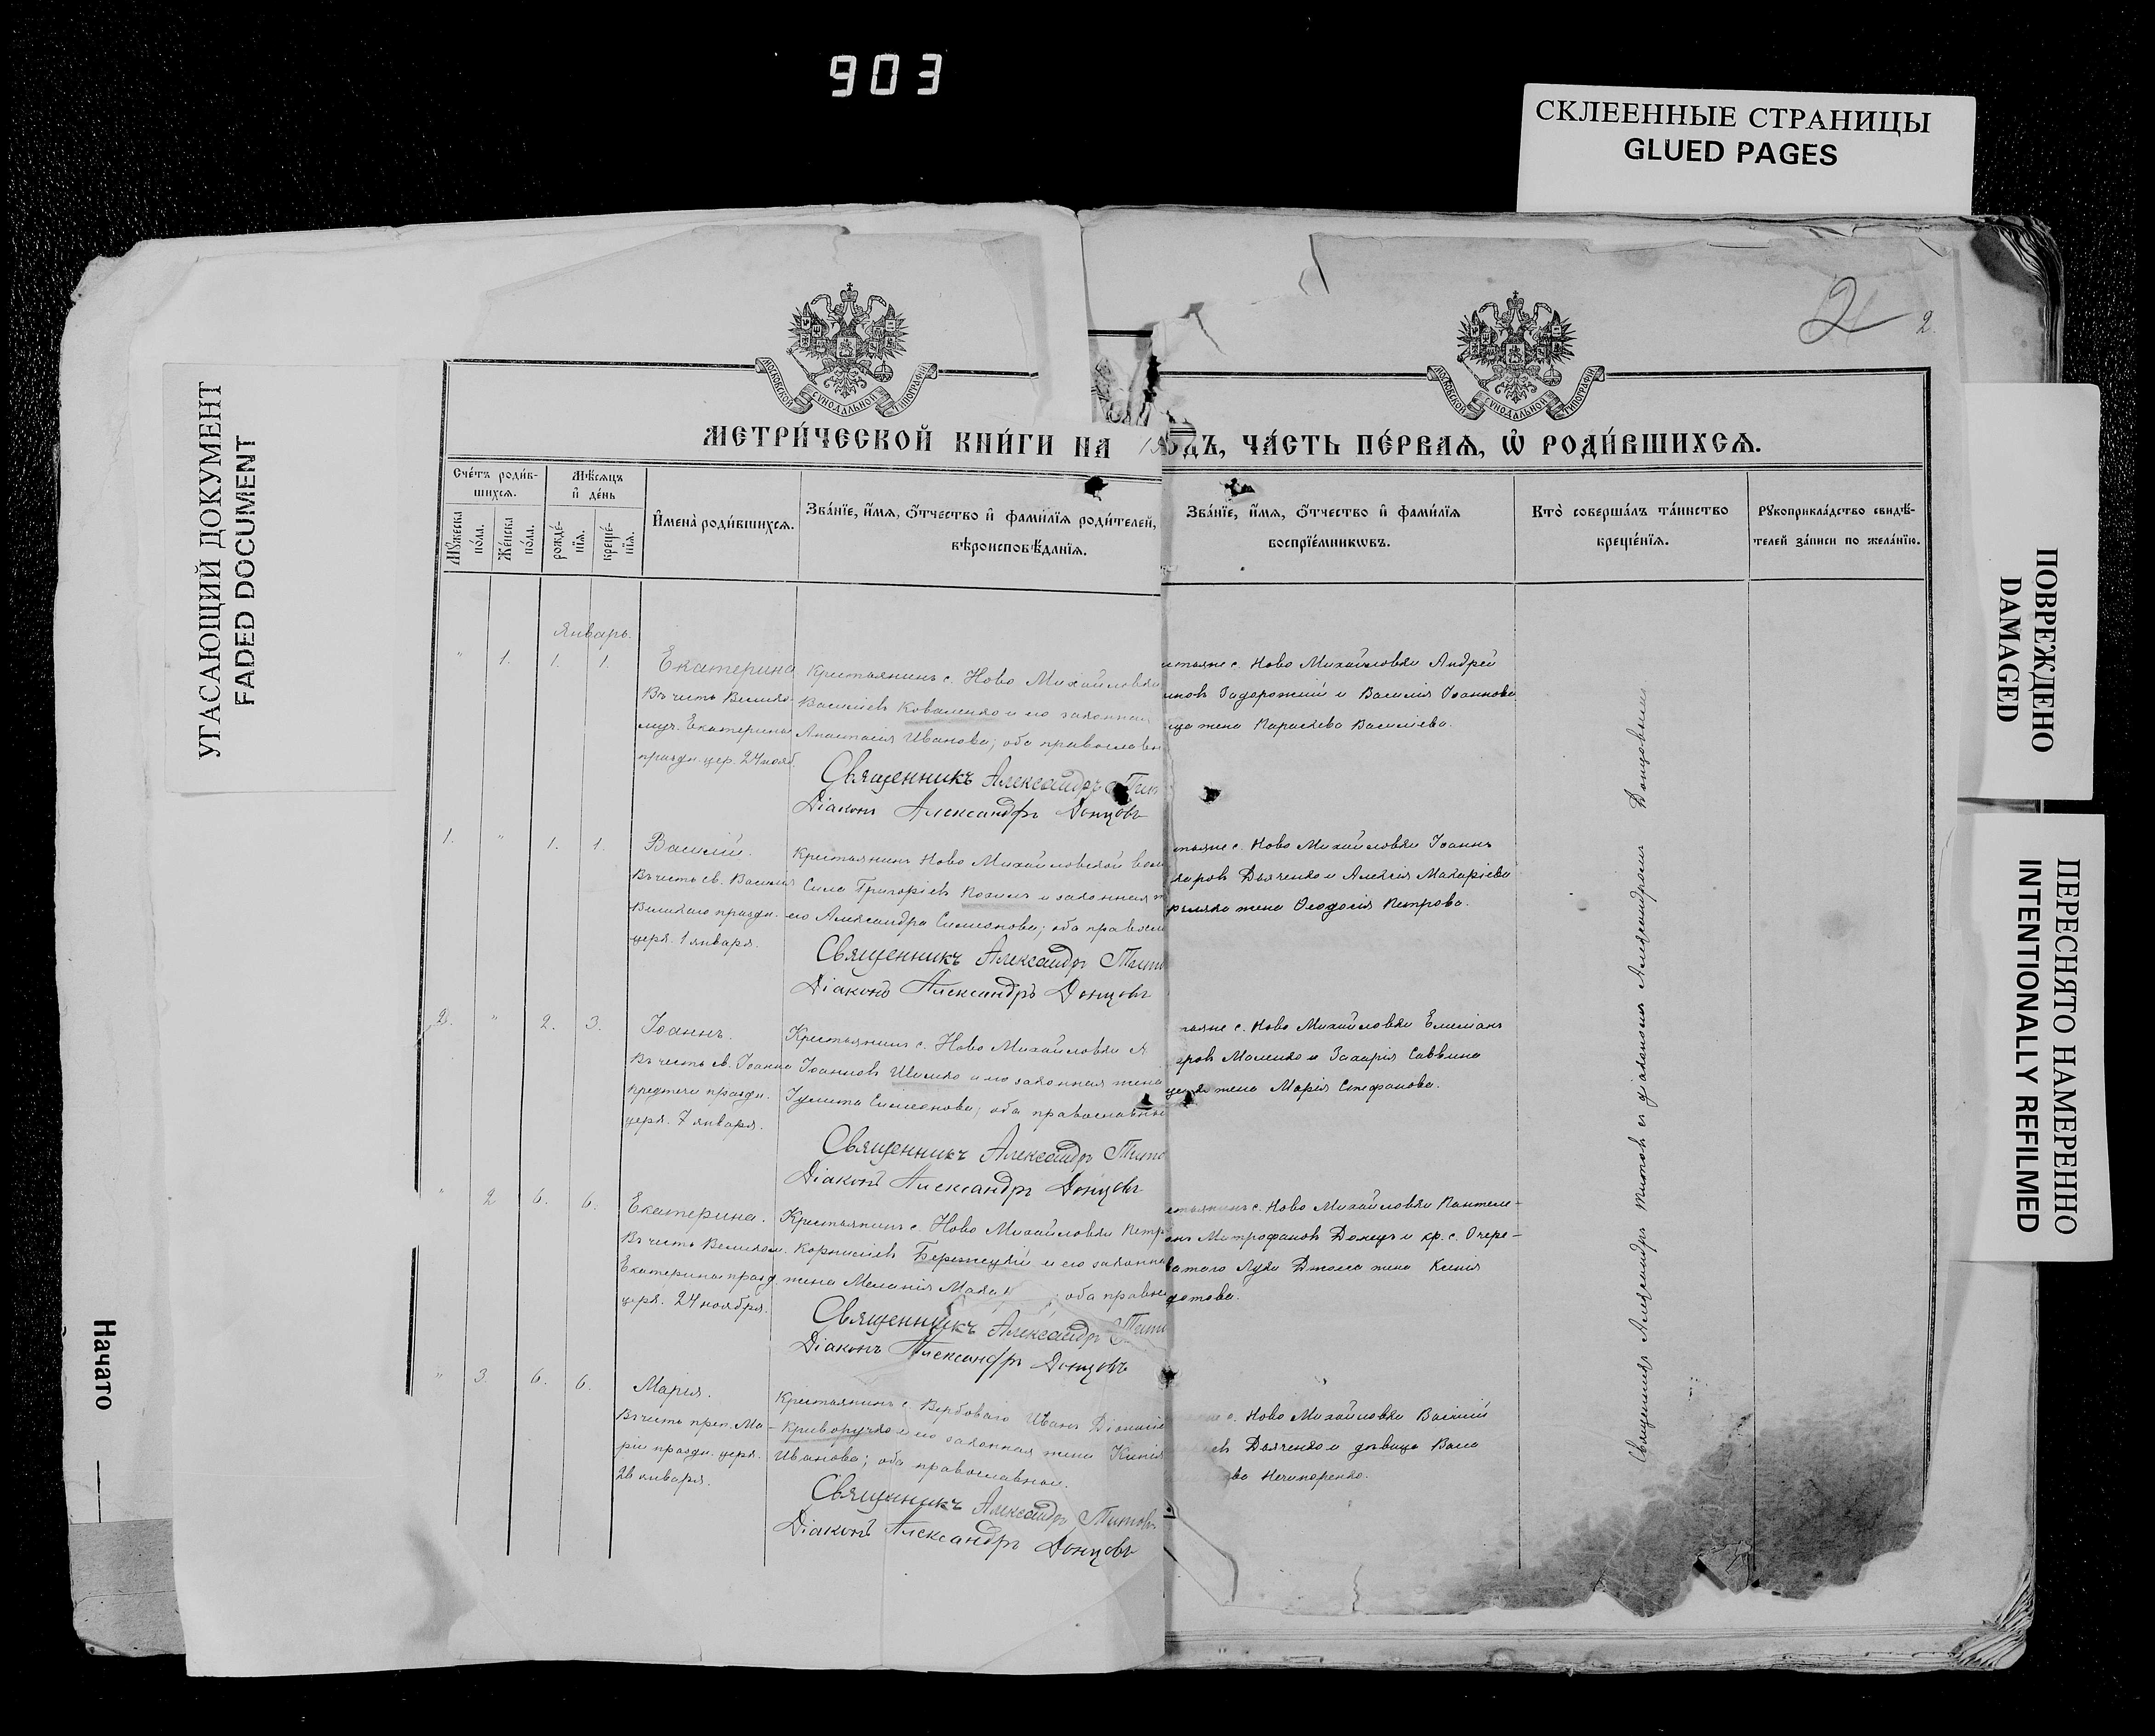 903
СКЛЕЕННЫЕ СТРАНИЦЫ
GLUED PAGES
УГАСАЮЩИЙ ДОКУМЕНТ
FADED DOCUMENT
ПОВРЕЖДЕНО
DAMAGED
ПЕРЕСНЯТО НАМЕРЕННО
INTENTIONALLY REFILMED
Начато
2 2.
МОСКОВСКОЙ СУНОДАЛЬНОЙ ТИПОГРАФІИ
МОСКОВСКОЙ СУНОДАЛЬНОЙ ТИПОГРАФІИ
МЕТРИ́ЧЕСКОЙ КНИ́ГИ НА
ДЪ, ЧА́СТЬ ПЕ́РВАѦ, Ѡ҆ РОДИ́ВШИХСѦ.
Сче́тъ роди́в-
шихсѧ.
Мꙋ́жеска по́ла.
Же́нска по́ла.
Мѣ́сѧцъ
и҆ де́нь
рожде́-
нїѧ.
креще́-
нїѧ.
И҆мена̀ роди́вшихсѧ.
Зва́нїе, и҆́мѧ, ѻ҆́тчество и҆ фами́лїѧ роди́телей,
вѣроисповѣ́данїѧ.
Зва́нїе, и҆́мѧ, ѻ҆́тчество и҆ фами́лїѧ
воспрїе́мникѡвъ.
Кто̀ соверша́лъ та́инство
креще́нїѧ.
Рꙋкоприкла́дство свидѣ́-
телей за́писи по жела́нїю.
Январь.
" 1. 1. 1.
Екатерина
Въ честь Велико-
муч. Екатерины
праздн. цер. 24 нояб.
Крестьянинъ с. Ново Михайловки
Василіевъ Коваленко и его законная
Анастасія Иванова; оба православн
Священникъ Александръ Тит
Діаконъ Александръ Донцовъ
стьяне с. Ново Михайловки Андрей
иновъ Задорожній и Василія Іоаннова
жена Параскева Василіева.
1. " 1. 1.
Василій.
Въ честь св. Василія
Великаго праздн.
церк. 1 января.
Крестьянинъ Ново Михайловской вол
Сила Григоріевъ Козилъ и законная
его Александра Симеонова; оба правосл
Священникъ Александръ Тит
Діаконъ Александръ Донцовъ
стьяне с. Ново Михайловки Іоаннъ
каровъ Дьяченко и Алексія Макаріева
жена Ѳеодосія Петрова.
2. " 2. 3.
Іоаннъ.
Въ честь св. Іоанна
предтечи праздн.
церк. 7 января.
Крестьянинъ с. Ново Михайловки
Іоанновъ Шилко и его законная жена
Іулита Симеонова; оба православны
Священникъ Александръ Тито
Діаконъ Александръ Донцовъ
тьяне с. Ново Михайловки Емиліанъ
Маленко и Захарія Саввина
жена Марія Стефанова.
" 2 6. 6.
Екатерина.
Въ честь Великом.
Екатерины празд.
церк. 24 ноября.
Крестьянинъ с. Ново Михайловки Петръ
Корниліевъ Бережецкій и его законна
жена Меланія оба правос
Священникъ Александръ Тит
Діаконъ Александръ Донцовъ
стьянинъ с. Ново Михайловки Пантеле-
Митрофановъ Донецъ и кр. с. Очере-
ватаго Луки жена Ксенія
дотова.
" 3. 6. 6.
Марія.
Въ честь преп. Ма-
ріи праздн. церк.
26 января.
Крестьянинъ с. Вербоваго Иванъ Діонисіе
Криворучко и его законная жена Ксенія
Иванова; оба православные.
Священникъ Александръ Титовъ
Діаконъ Александръ Донцовъ
с. Ново Михайловки Василій
евъ Дьяченко и девица Васс
ва Нечипоренко.
Священникъ Александръ Титовъ съ діакономъ Александромъ Донцовымъ